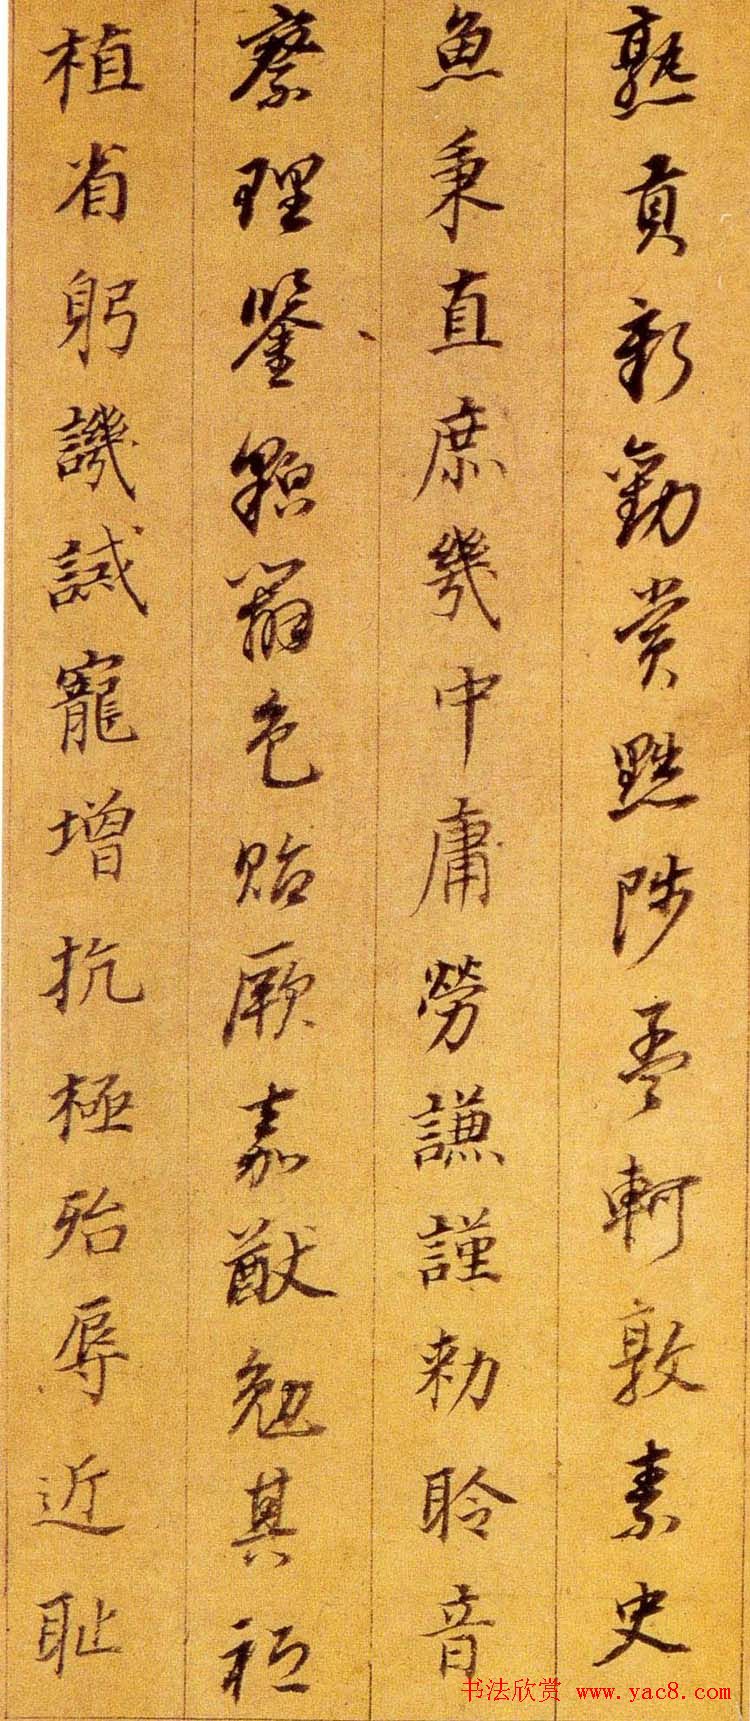 熟貢新勸賞黜陟孟軻敦素史
魚秉直庶幾中庸勞謙謹勅聆音
察理鑒貌辯色貽厥嘉猷勉其祗
植省躬譏誡寵增抗極殆辱近耻
书法欣赏 www.yac8.com